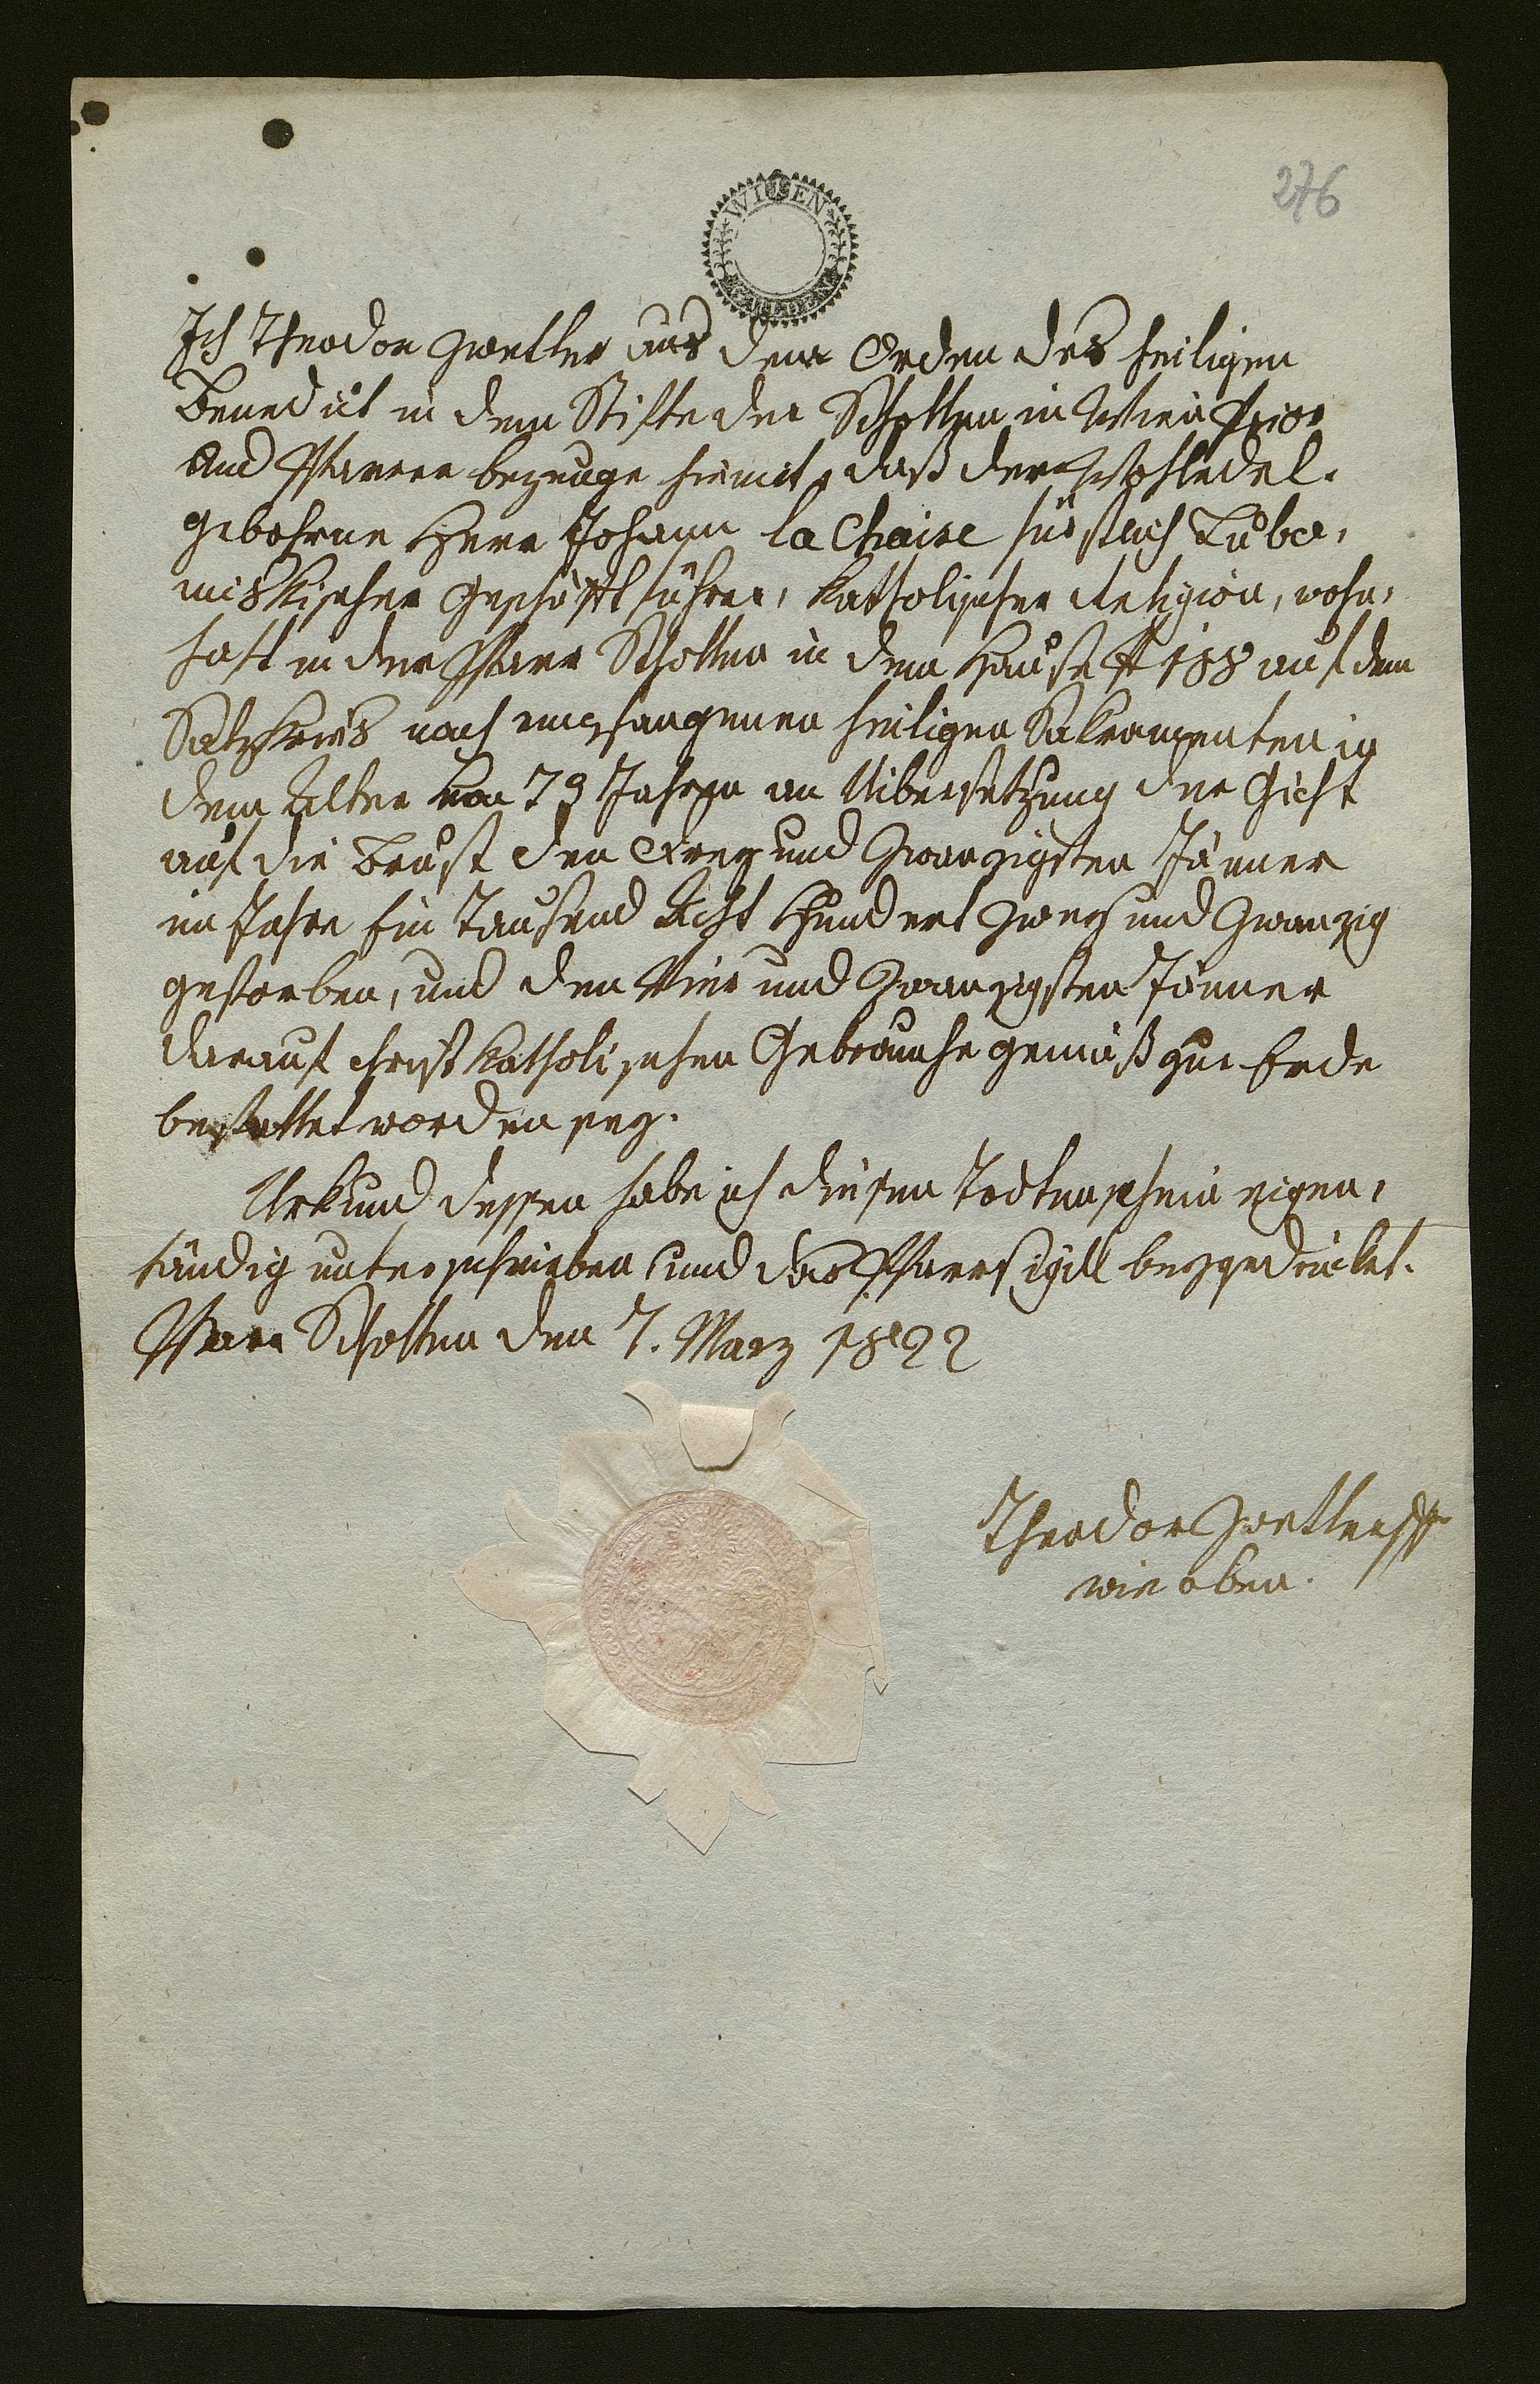 276
WI EN
Ich Theodor Zwettler aus dem Orden des heiligen
Benedict in dem Stifte der Schotten in Wien Prior
und Pfarrer bezeuge hiemit, daß der Wohledel-
gebohrne Herr Johann la Chaise fürstlich Lubo-
mirskischer Geschäftsführer, katholischer Religion, wohn-
haft in der Pfarr Schotten in dem Hause N 188 auf dem
Salzgries nach empfangenen heiligen Sakramenten in
dem Alter von 79 Jahren an Uibersetzung der Gicht
auf die Brust den Drey und Zwanzigsten Jänner
im Jahre Ein Tausend Acht Hundert Zwey und Zwanzig
gestorben, und den Vier und Zwanzigsten Jänner
darauf christkatholischen Gebrauche gemäß zur Erde
bestattet worden sey.
Urkund dessen habe ich diesen Todtenschein eigen-
händig unterschrieben und das Pfarrsigill beygedrücket.
Pfarr Schotten den 7. Marz 1822
Theodor Zwettler
wie oben.